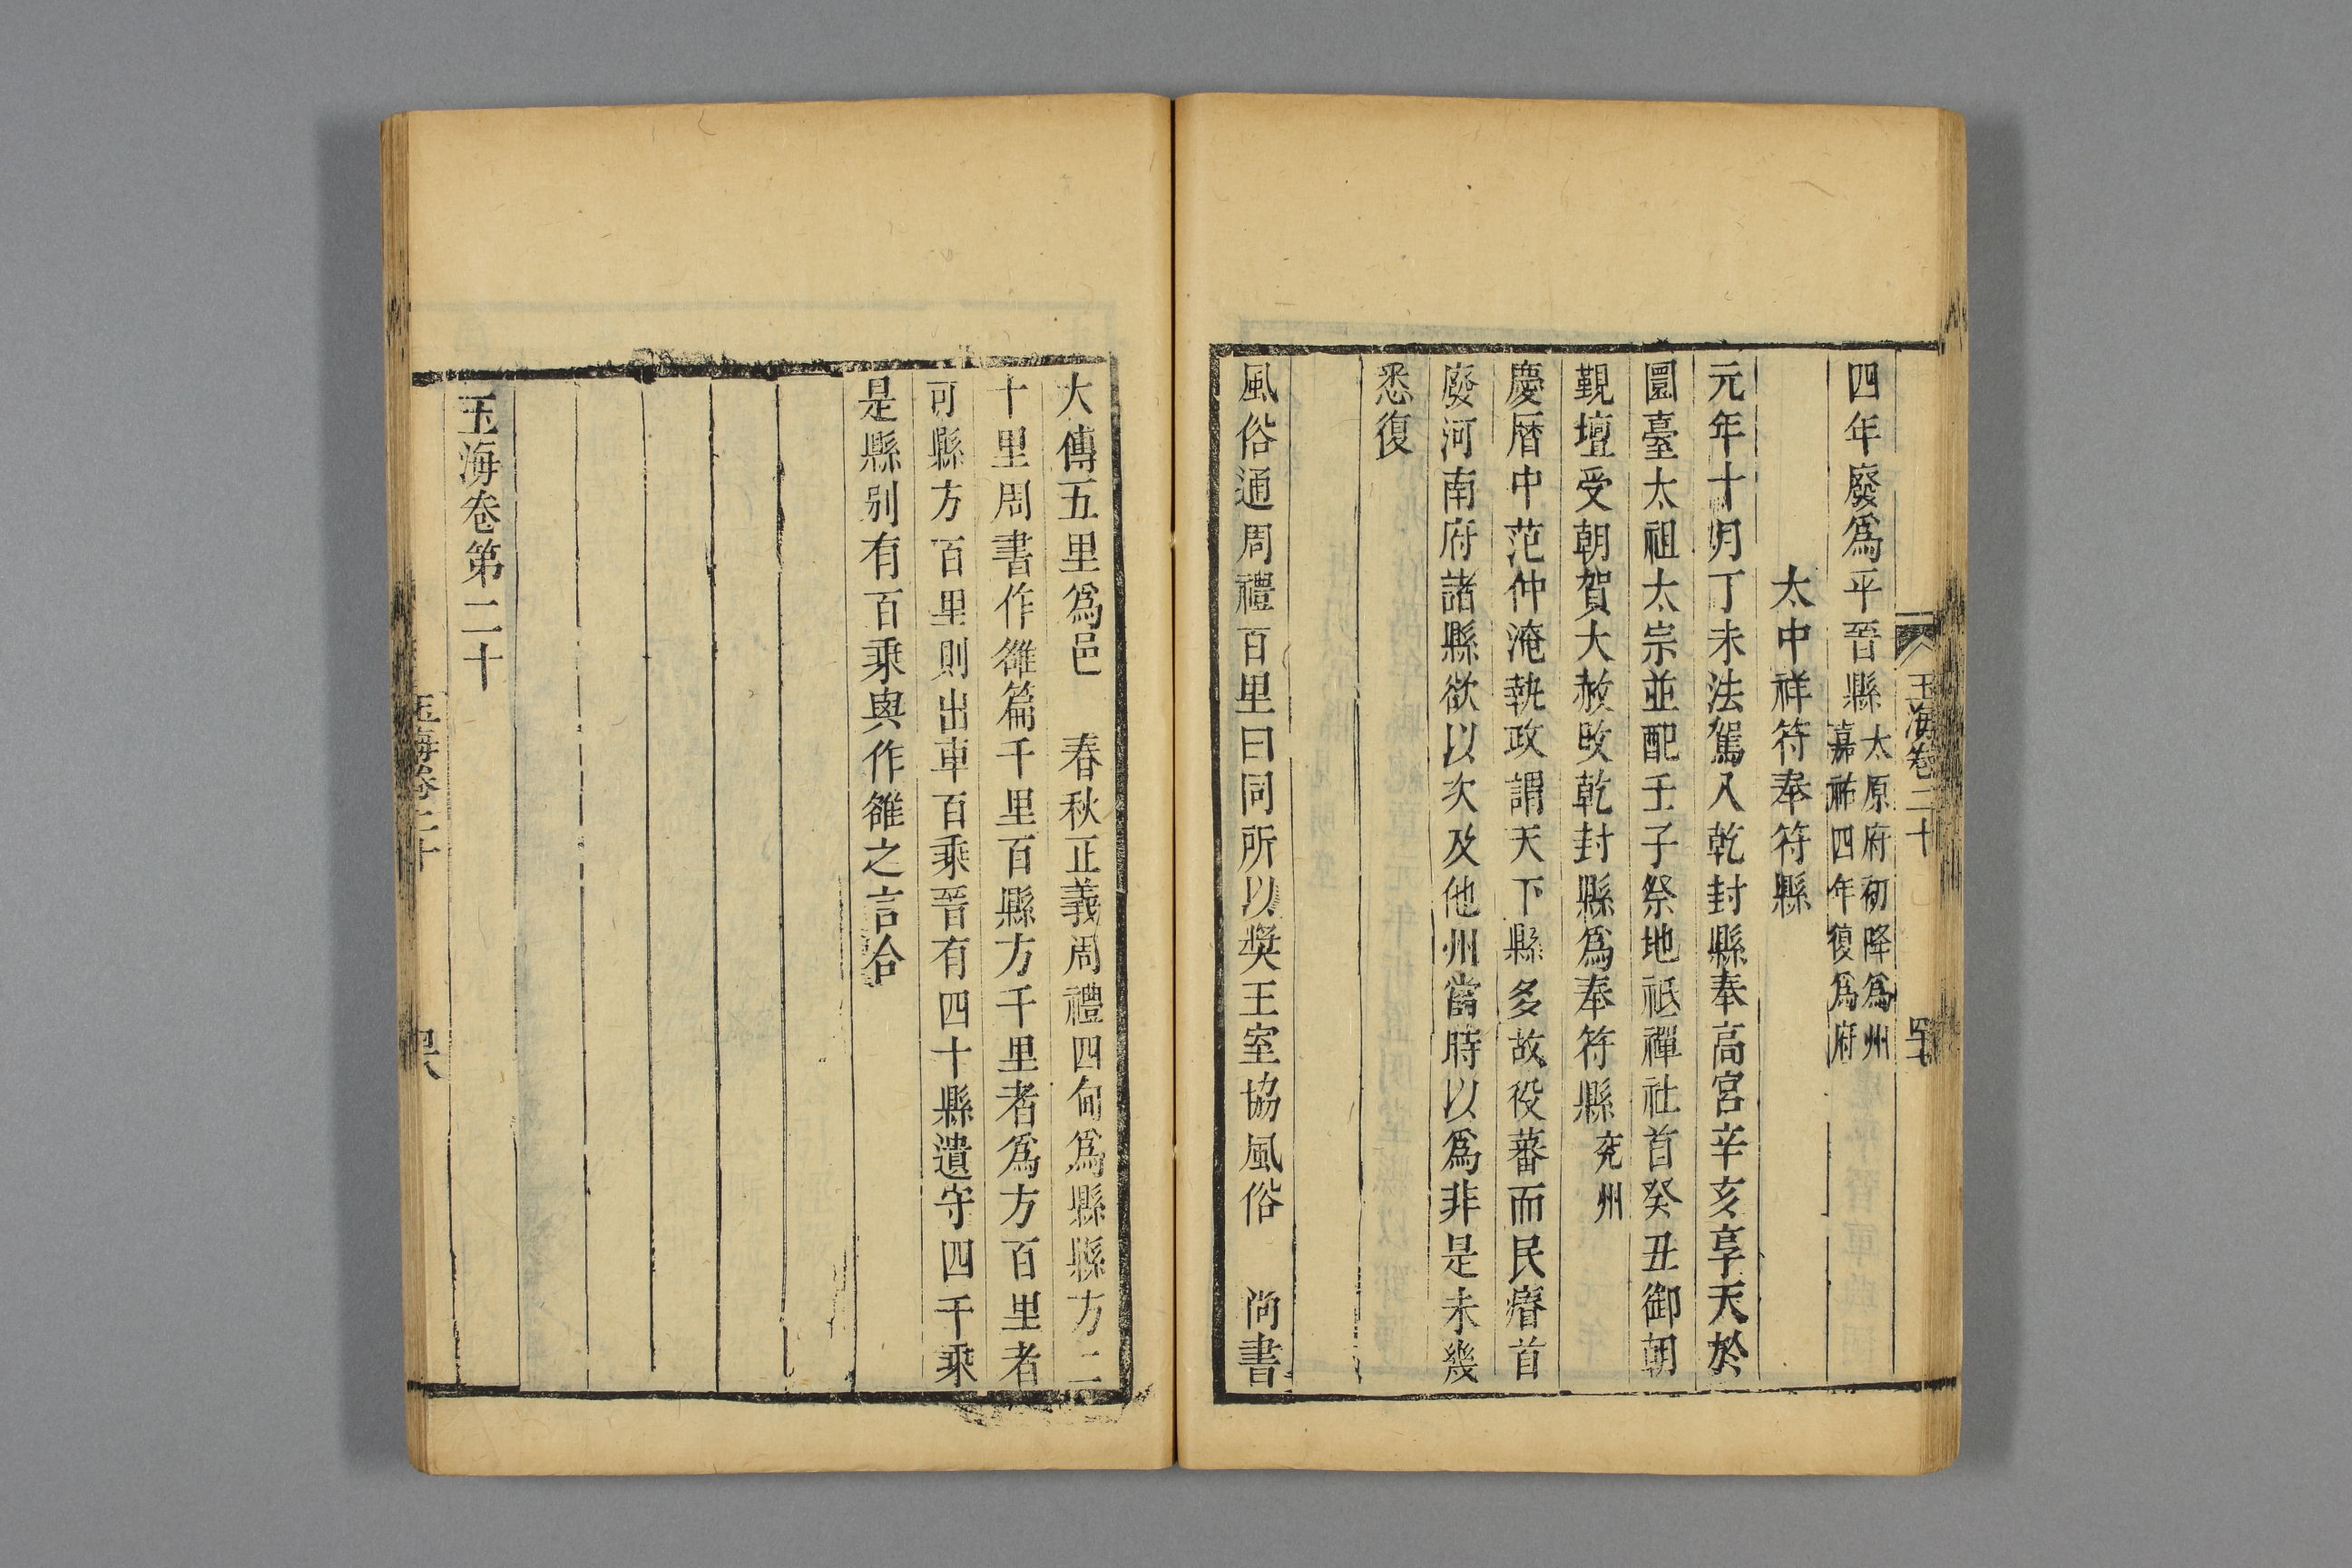 玉海卷二十
四年廢爲平晉縣太原府初降爲州嘉祐四年復爲府
太中祥符奉符縣
元年十月丁未法駕入乾封縣奉高宮辛亥享天於
圜臺太祖太宗並配壬子祭地祗禪社首癸丑御朝
覲壇受朝賀大赦改乾封縣爲奉符縣兖州
慶曆中范仲淹執政謂天下縣多故役蕃而民瘠首
廢河南府諸縣欲以次及他州當時以爲非是未幾
悉復
風俗通周禮百里曰同所以奬王室協風俗 尚書
大傳五里爲邑 春秋正義周禮四甸爲縣縣方二
十里周書作雒篇千里百縣方千里者爲方百里者
可縣方百里則出車百乘晉有四十縣遺守四千乘
是縣别有百乘與作雒之言合
玉海卷第二十
玉海卷二十